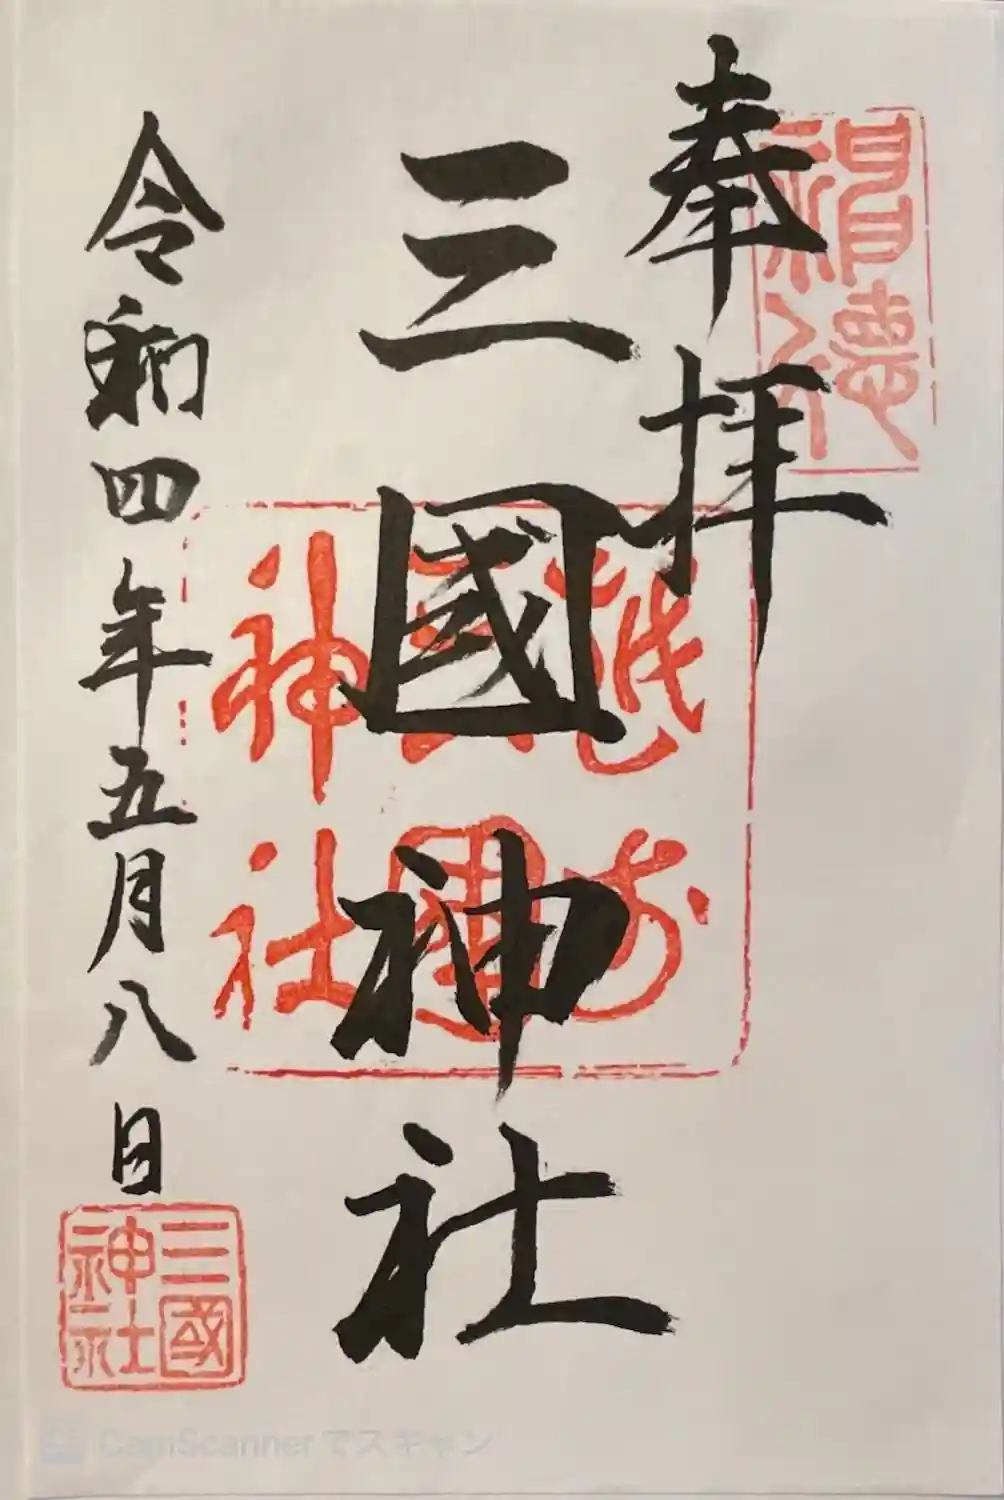 奉拝
三國神社
令和四年五月八日
三國神社
神社
CamScanner でスキャン